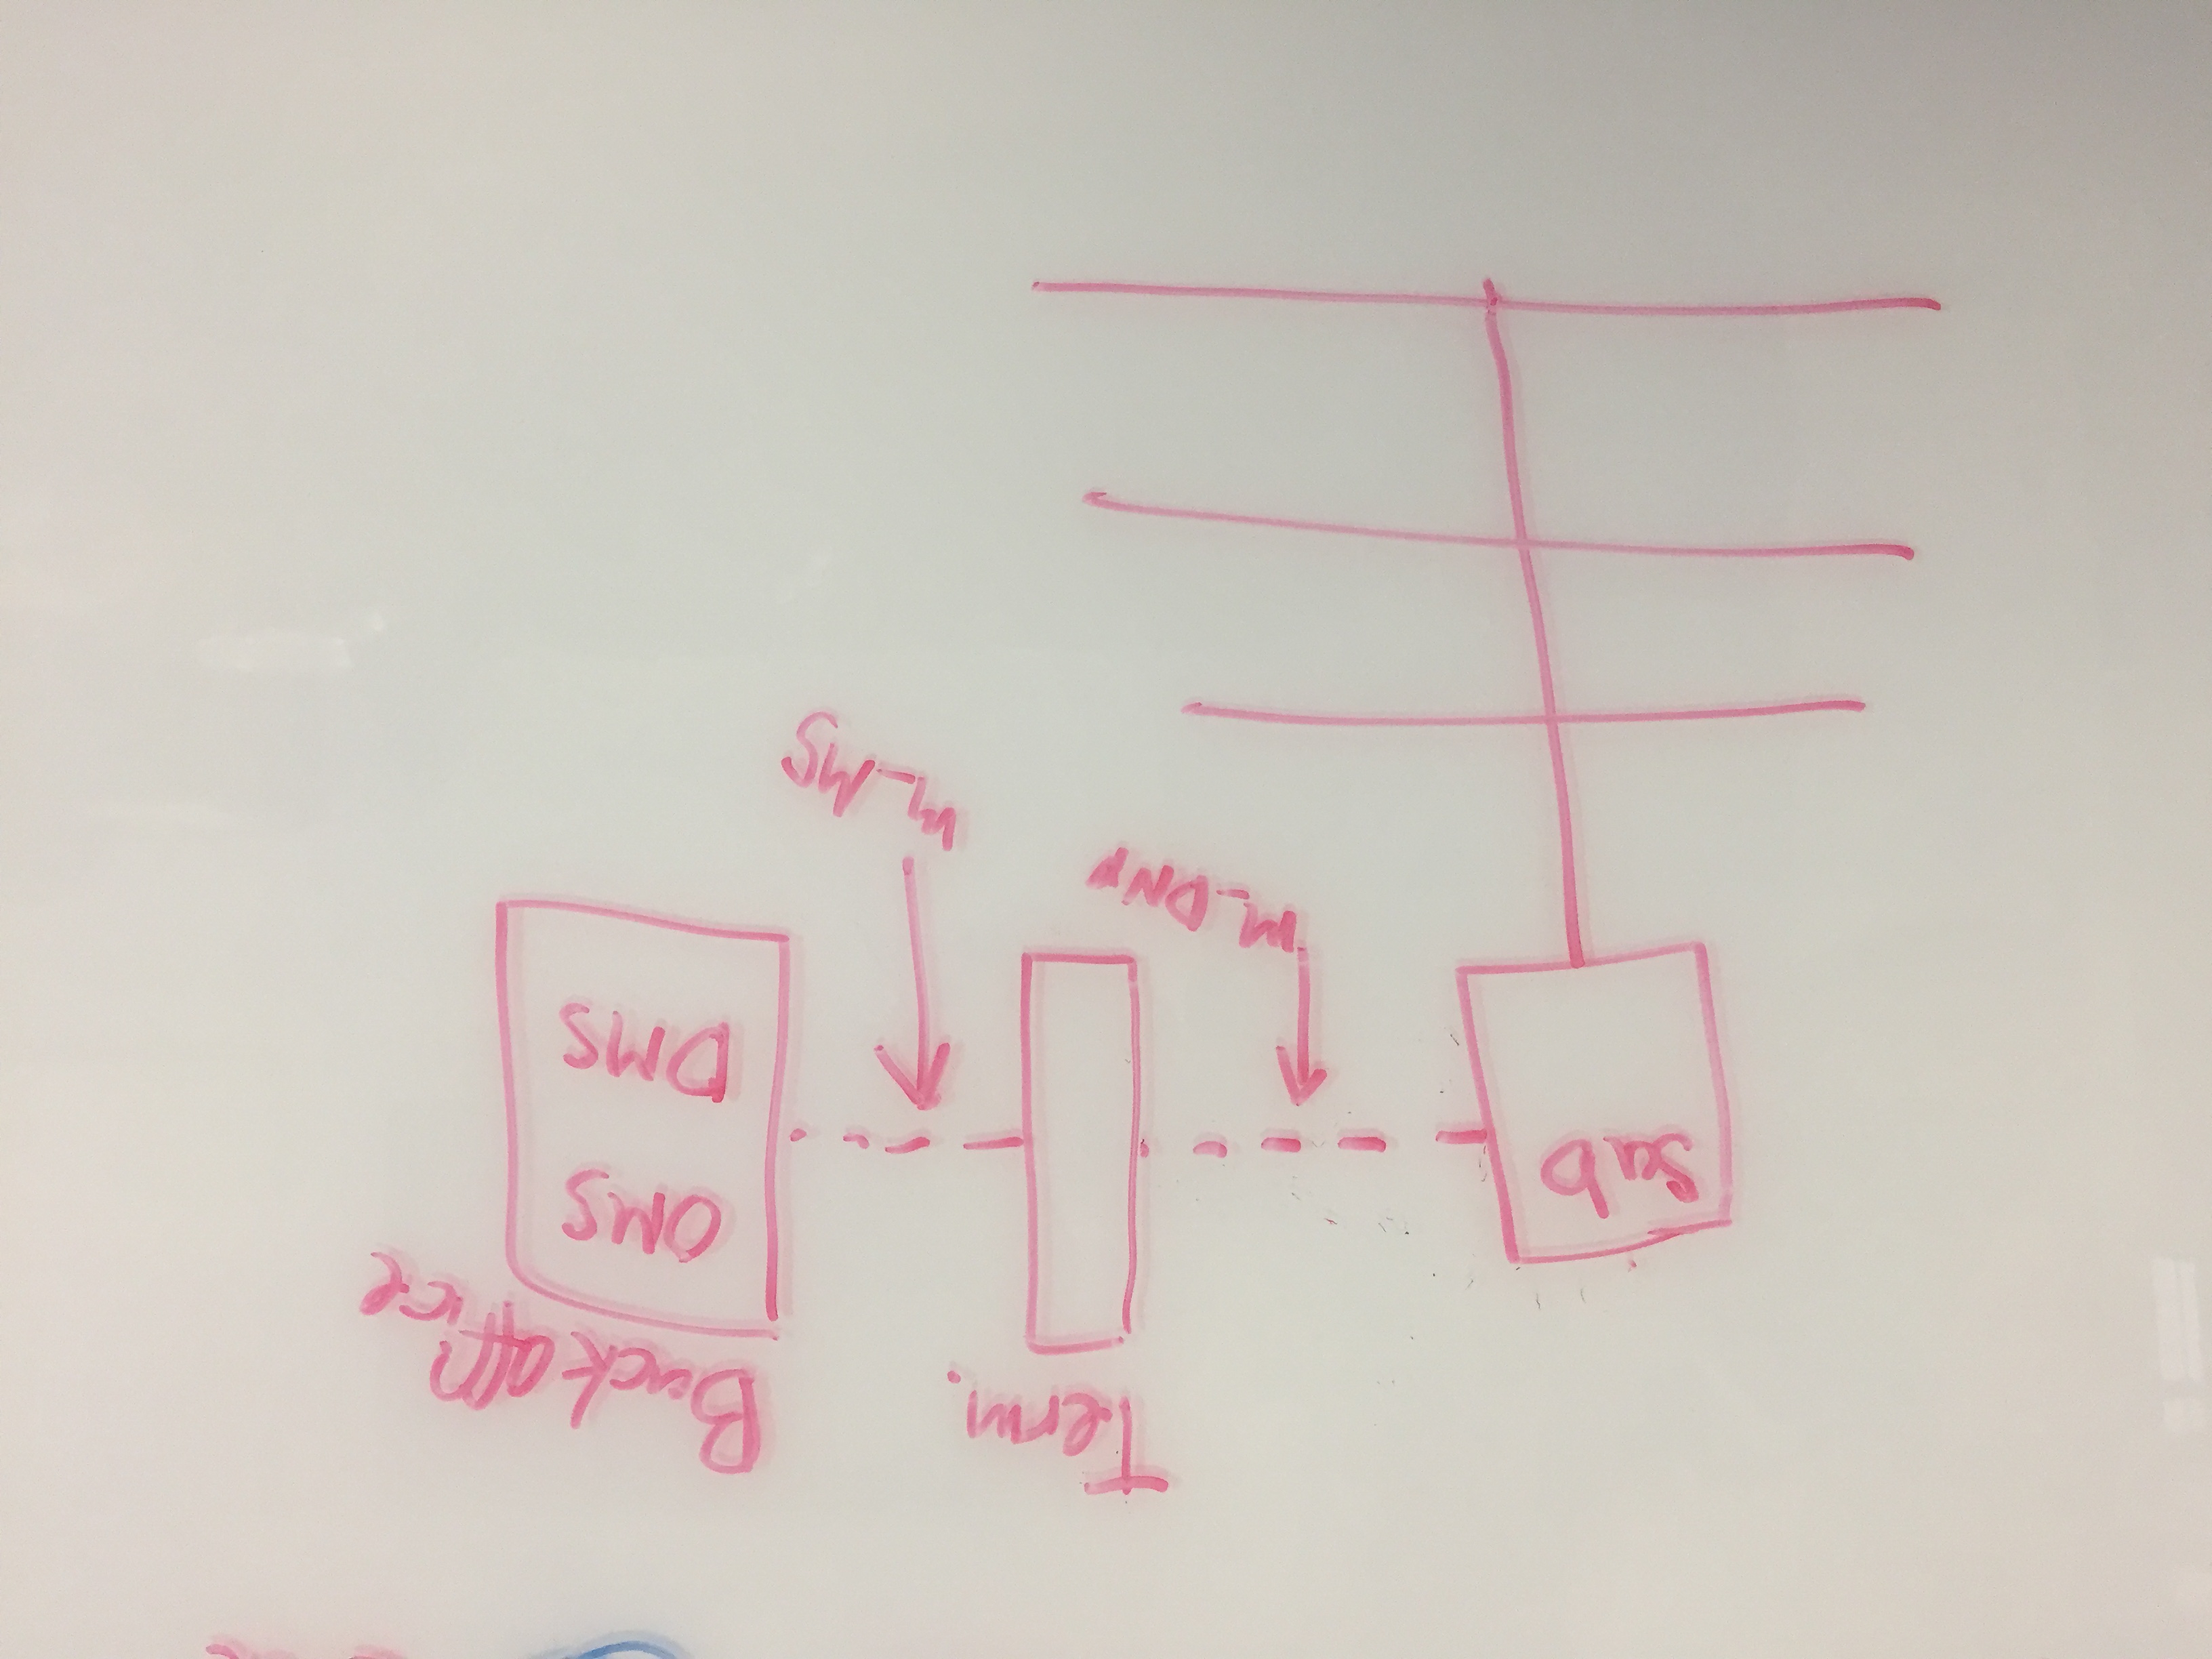 Term.
Back office
Sub
OMS
DMS
M_DNP
M_MS